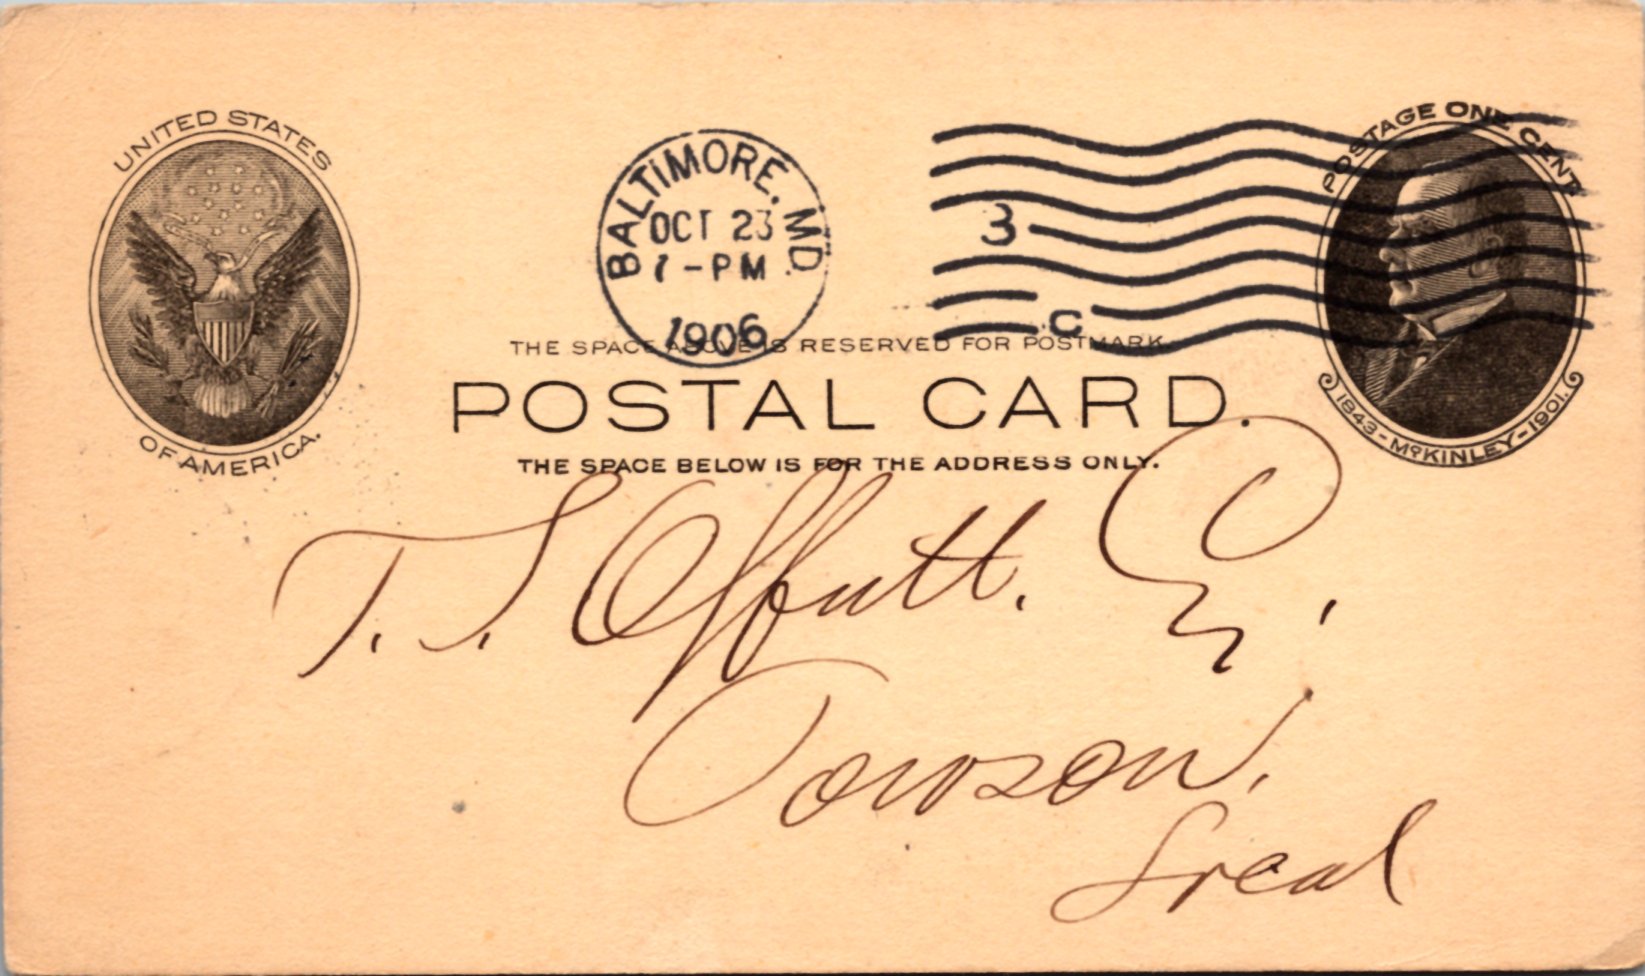 UNITED STATES
OF AMERICA.
BALTIMORE, MD.
OCT 23
1-PM
1906
3
C
POSTAGE ONE CENT
1843-McKINLEY-1901.
THE SPACE ABOVE IS RESERVED FOR POSTMARK.
POSTAL CARD.
THE SPACE BELOW IS FOR THE ADDRESS ONLY.
T. S. Offutt. E.
Towson.